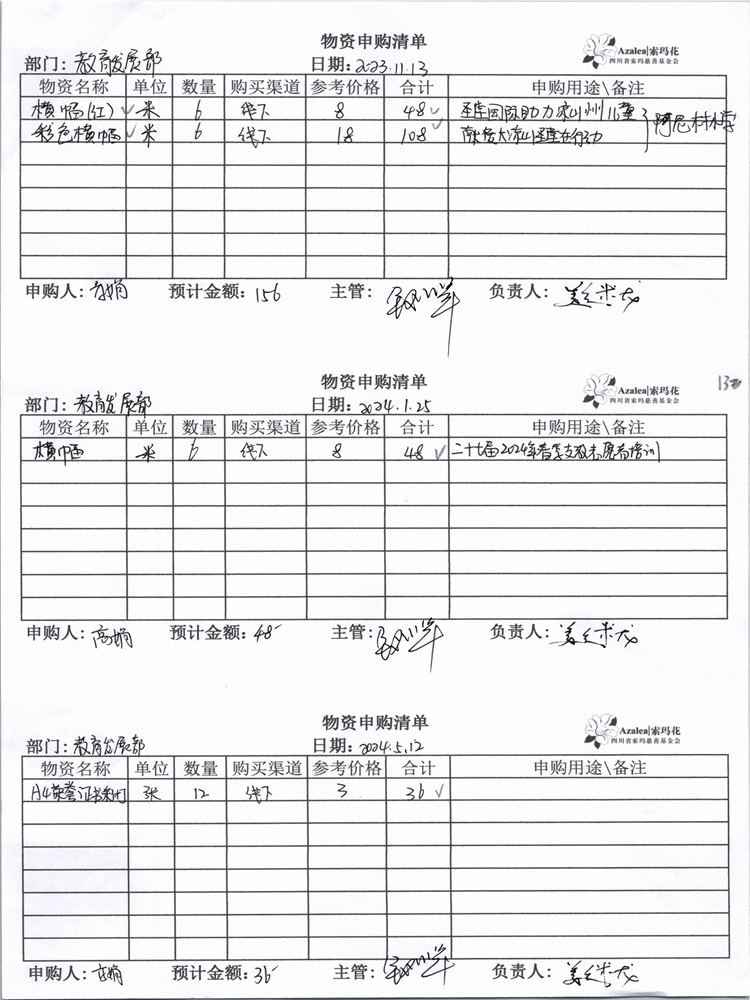 物资申购清单
Azalea|索玛花
四川省索玛慈善基金会
部门：教育发展部 日期：2023.11.13
物资名称 单位 数量 购买渠道 参考价格 合计 申购用途\备注
横幅(红) 米 6 线下 8 48 国际助力凉山州儿童
彩色横幅 米 6 线下 18 108 大凉山 行动 阿尼村小学
申购人：高娟 预计金额：156 主管： 负责人：
物资申购清单
Azalea|索玛花
四川省索玛慈善基金会
部门：教育发展部 日期：2024.1.25
物资名称 单位 数量 购买渠道 参考价格 合计 申购用途\备注
横幅 米 6 线下 8 48 二十七届2024年春季支教志愿者培训
申购人：高娟 预计金额：48 主管： 负责人：
物资申购清单
Azalea|索玛花
四川省索玛慈善基金会
部门：教育发展部 日期：2024.5.12
物资名称 单位 数量 购买渠道 参考价格 合计 申购用途\备注
A4荣誉证书 张 12 线下 3 36
申购人：高娟 预计金额：36 主管： 负责人：